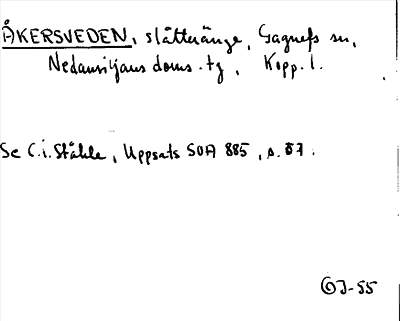 ÅKERSVEDEN, slåtteränge, Gagnefs sn,
Nedansiljans doms.tg, Kopp.l.
Se C.i. Ståhle, Uppsats SOA 885, s. 57.
GJ-55